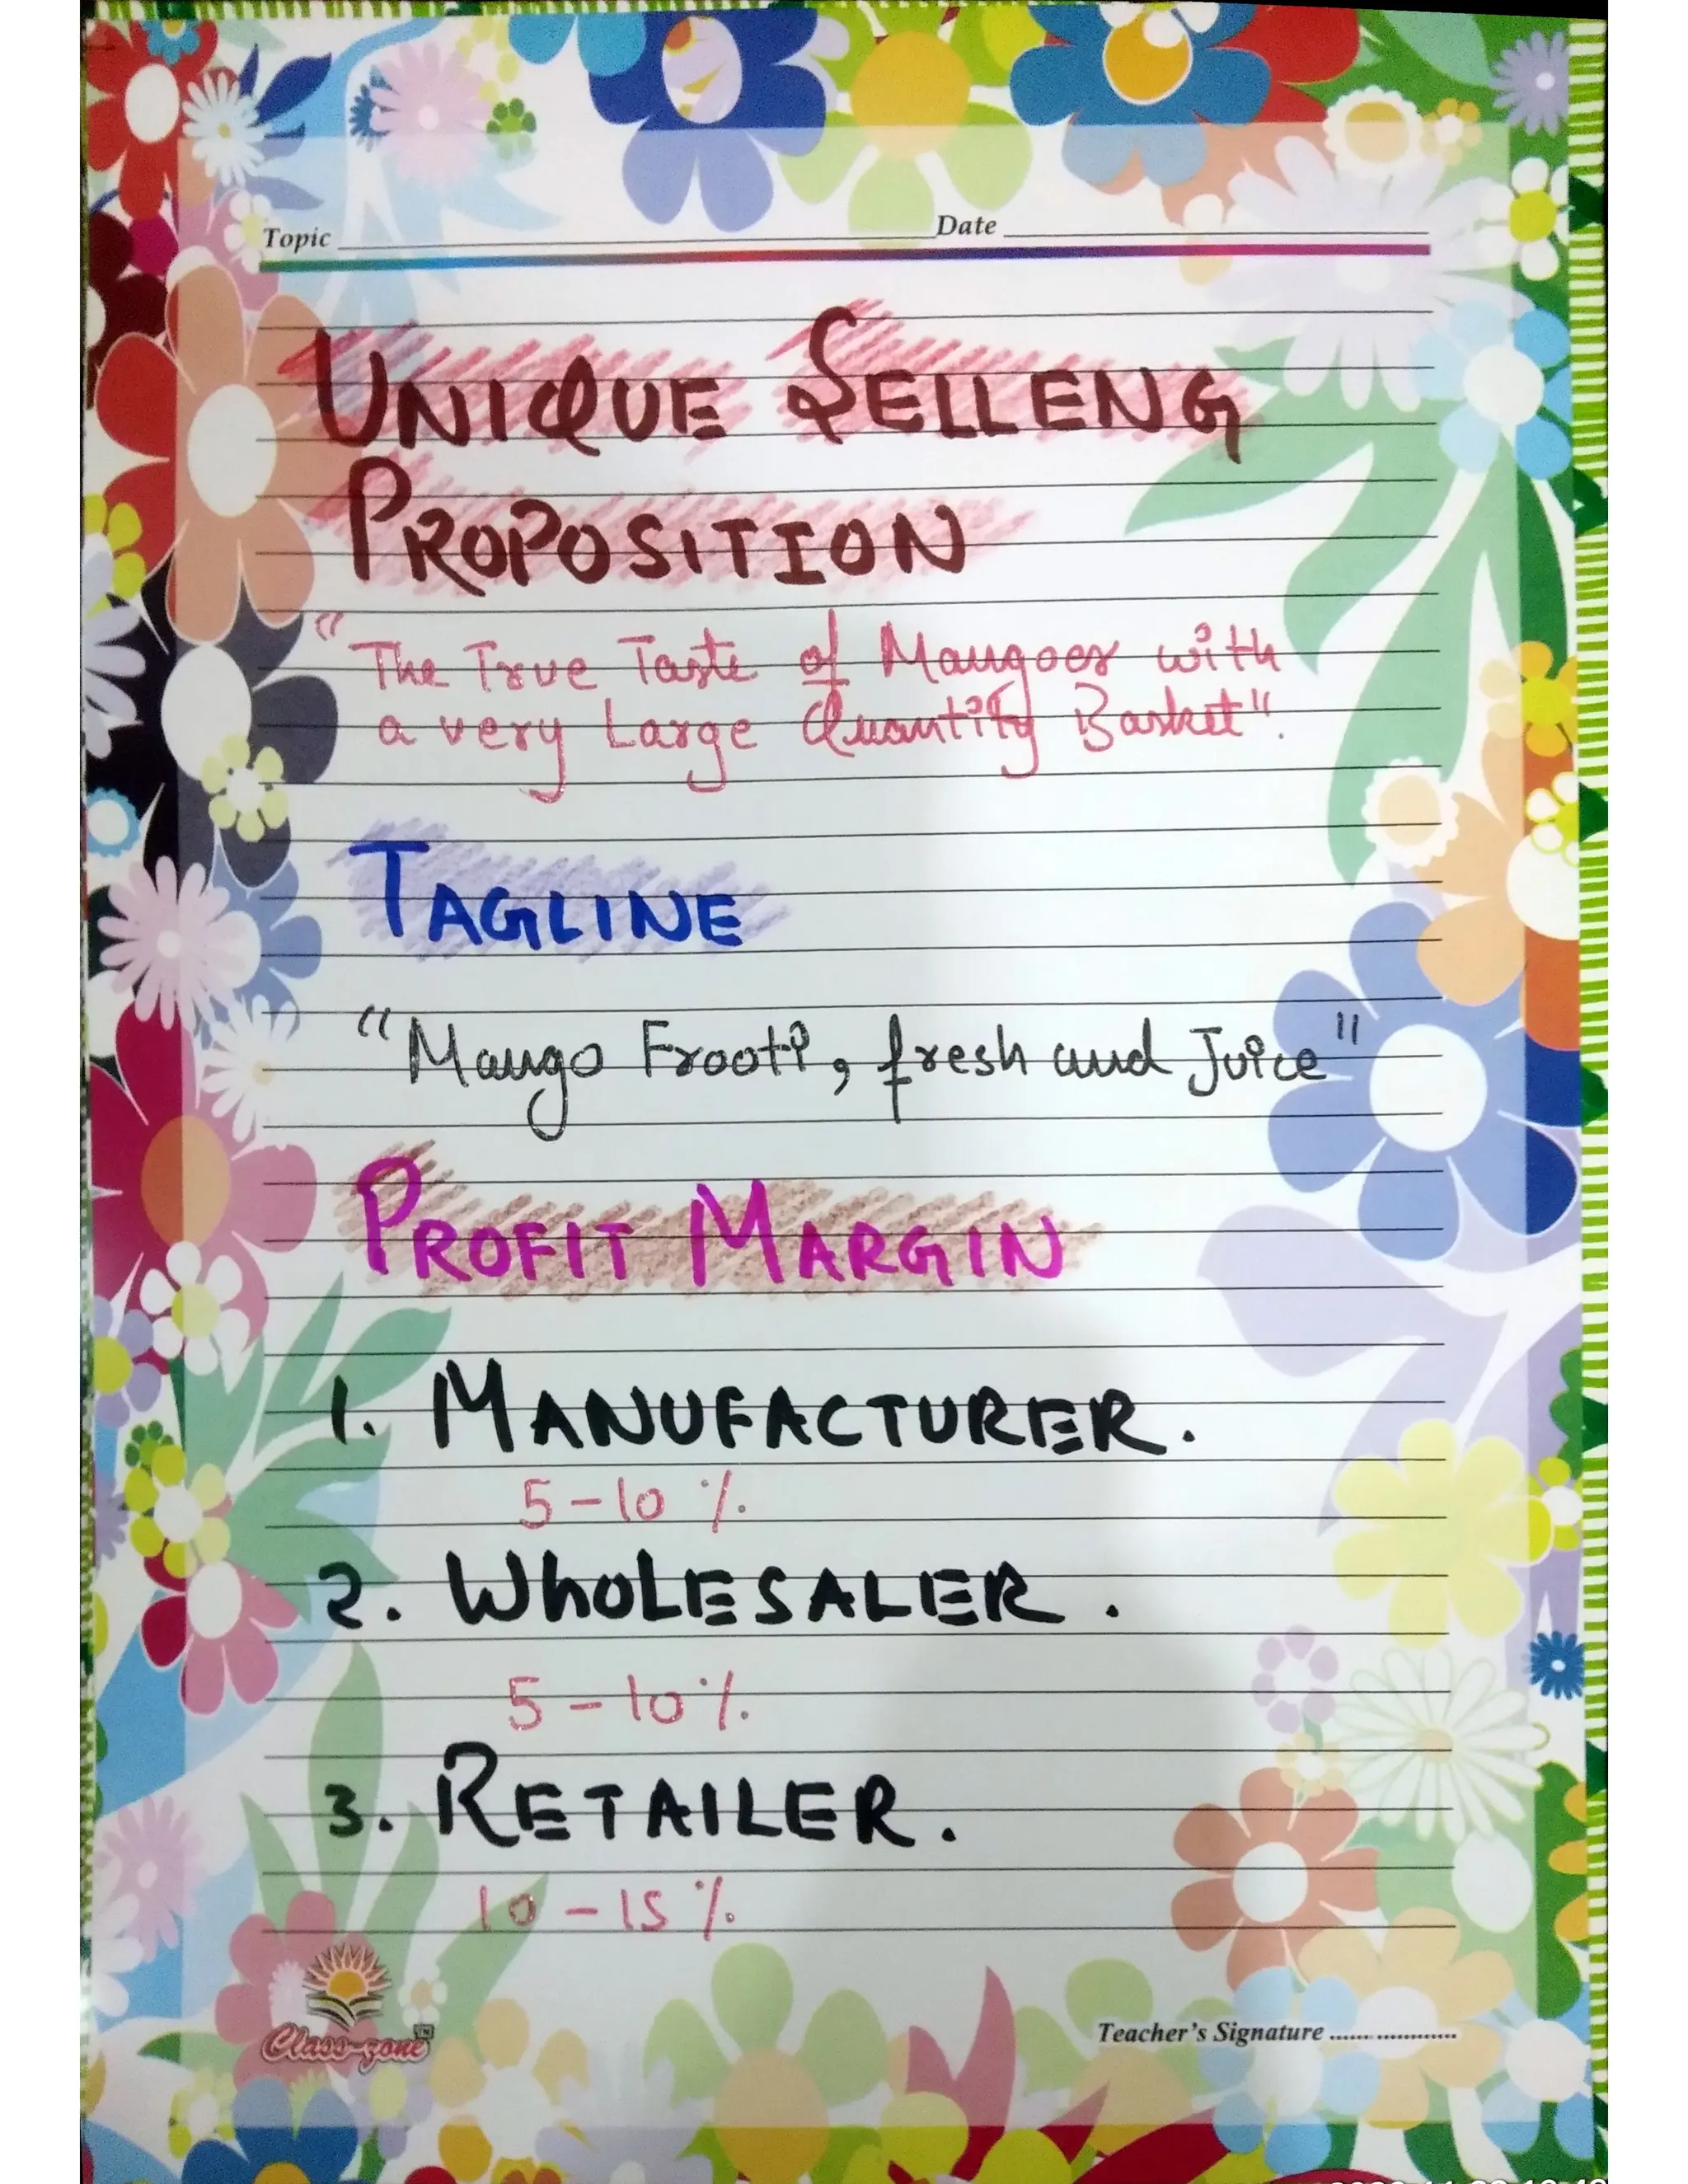 Topic Date
UNIQUE SELLENG
PROPOSITION
"The True Taste of Mangoes with
a very Large Quantity Basket".
TAGLINE
"Mango Frooti, fresh and Juice"
PROFIT MARGIN
1. MANUFACTURER.
5-10 %
2. WhOLESALER.
5-10%
3. RETAILER.
10-15%
Class-zone TM
Teacher's Signature ......................